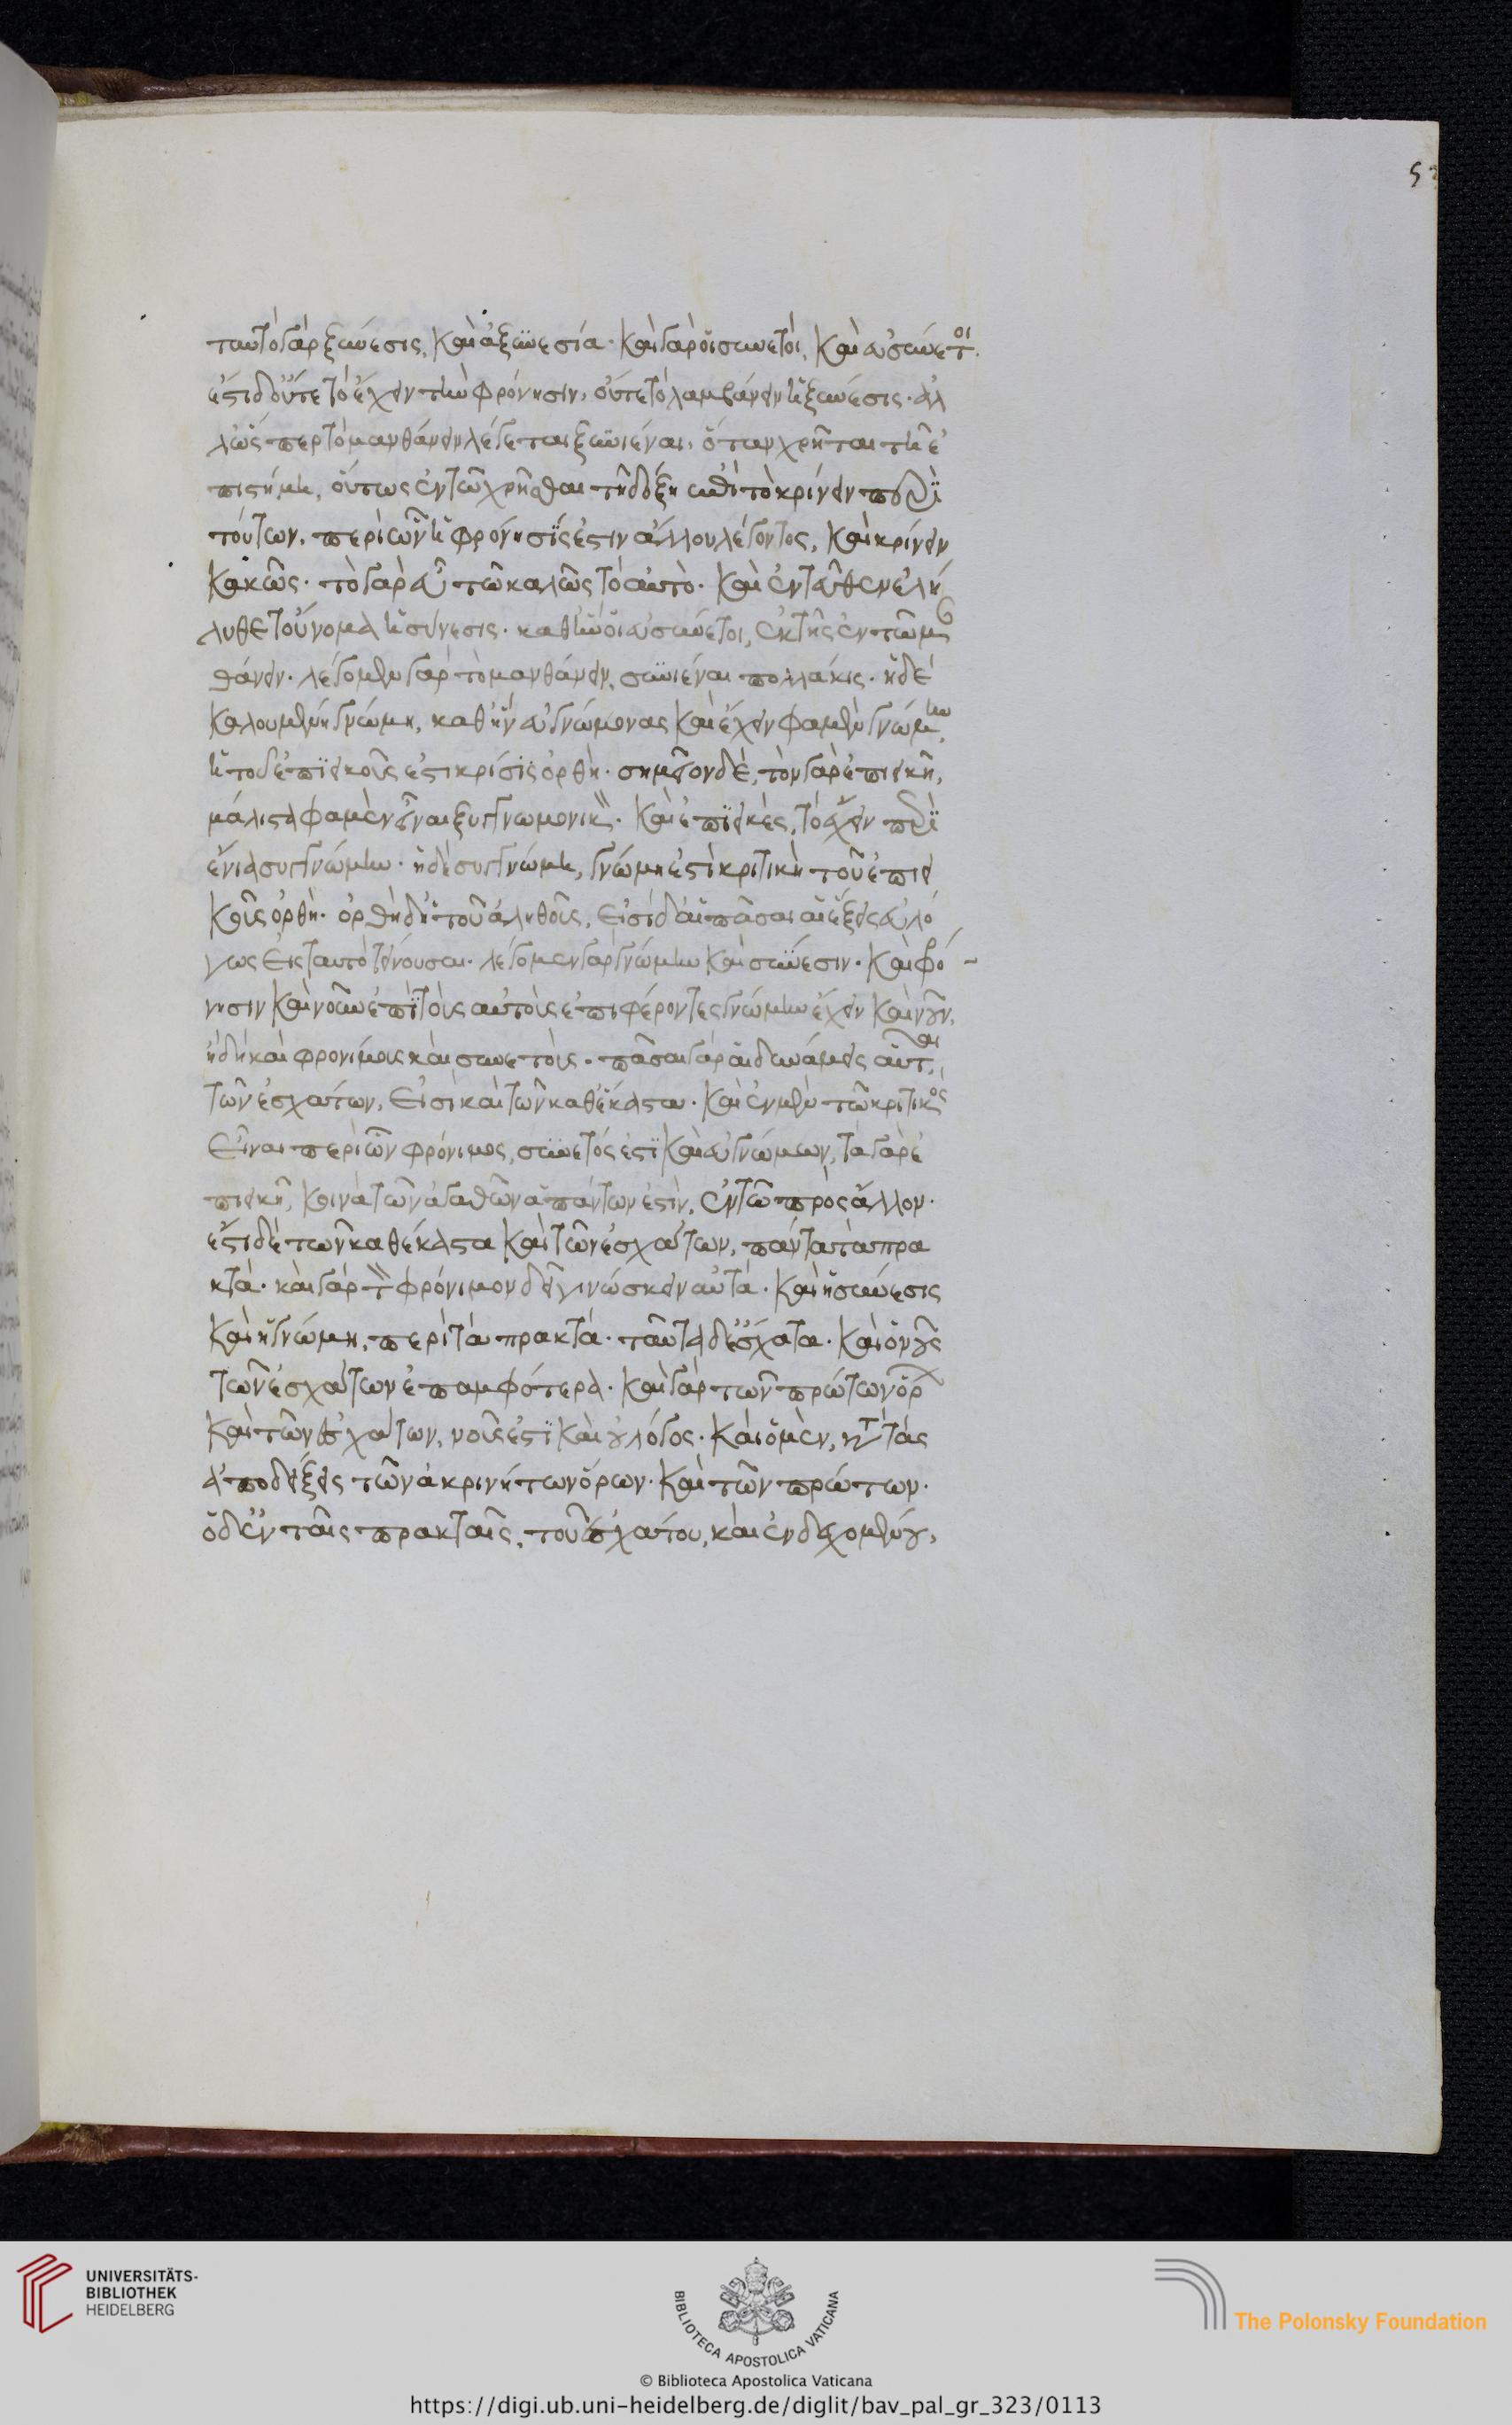 5
ταυτὸ γὰρ ξύνεσις, καὶ ἀξυνεσία. καὶ γὰρ οἱ συνετοὶ, καὶ εὐσύνετοι.
ἔστι δ' οὔτε τὸ ἔχειν τὴν φρόνησιν, οὔτε τὸ λαμβάνειν ἡ ξύνεσις. ἀλ
λ' ὥσπερ τὸ μανθάνειν λέγεται ξυνιέναι, ὅταν χρῆται τῇ ἐ
πιστήμῃ, οὕτως ἐν τῶ χρῆσθαι τῇ δόξῃ ἐπὶ τὸ κρίνειν περὶ
τούτων, περὶ ὧν ἡ φρόνησίς ἐστιν ἄλλου λέγοντος, καὶ κρίνειν
κακῶς. τὸ γὰρ εὖ τῶ καλῶς τὸ αὐτὸ. καὶ ἐντεῦθεν ἐλή
λυθε τοὔνομα ἡ σύνεσις. καθ' ἣν οἱ εὐσύνετοι, ἐκ τῆς ἐν τῶ μαν
θάνειν. λέγομεν γὰρ τὸ μανθάνειν, συνιέναι πολλάκις. ἡ δὲ
καλουμένη γνώμη, καθ' ἣν εὐγνώμονας καὶ ἔχειν φαμὲν γνώμην,
ἡ τοῦ ἐπιεικοῦς ἐστι κρίσις ὀρθὴ. σημεῖον δὲ, τὸν γὰρ ἐπιεικῆ,
μάλιστα φαμὲν εἶναι ξυγγνωμονικὸν. καὶ ἐπιεικὲς, τὸ ἔχειν περὶ
ἔνια συγγνώμην. ἡ δὲ συγγνώμη, γνώμη ἐστὶ κριτικὴ τοῦ ἐπιει
κοῦς ὀρθὴ. ὀρθὴ δ' ἡ τοῦ ἀληθοῦς, εἰσὶ δ' αἱ πᾶσαι αἱ ἕξεις εὐλό
γως εἰς ταυτὸ τείνουσαι. λέγομεν γὰρ γνώμην καὶ σύνεσιν. καὶ φρό
νησιν καὶ νοῦν ἐπὶ τοὺς αὐτοὺς ἐπιφέροντες γνώμην ἔχειν καὶ νοῦν,
ἤδη καὶ φρονίμους καὶ συνετοὺς. πᾶσαι γὰρ αἱ δυνάμεις αὗται,
τῶν ἐσχάτων, εἰσὶ καὶ τῶν καθ' ἕκαστα. καὶ ἐν μὲν τῶ κριτικὸς
εἶναι περὶ ὧν φρόνιμος, συνετός ἐστι καὶ εὐγνώμων, τὰ γὰρ ἐ
πιεικῆ, κοινὰ τῶν ἀγαθῶν ἁπάντων ἐστὶν, ἐν τῶ πρὸς ἄλλον.
ἔστι δὲ τῶν καθ' ἕκαστα καὶ τῶν ἐσχάτων, πάντα τὰ πρα
κτά. καὶ γὰρ τὸν φρόνιμον δεῖ γινώσκειν αὐτὰ. καὶ ἡ σύνεσις
καὶ ἡ γνώμη, περὶ τὰ πρακτὰ. ταῦτα δ' ἔσχατα. καὶ ὁ νοῦς
τῶν ἐσχάτων ἐπ' ἀμφότερα. καὶ γὰρ τῶν πρώτων ὅρων
καὶ τῶν ἐσχάτων, νοῦς ἐστι καὶ οὐ λόγος. καὶ ὁ μὲν, κατὰ τὰς
ἀποδείξεις τῶν ἀκρινήτων ὅρων. καὶ τῶν πρώτων.
ὁ δ' ἐν ταῖς πρακταῖς, τοῦ ἐσχάτου, καὶ ἐνδεχομένου,
UNIVERSITÄTS-
BIBLIOTHEK
HEIDELBERG
BIBLIOTECA APOSTOLICA VATICANA
The Polonsky Foundation
© Biblioteca Apostolica Vaticana
https://digi.ub.uni-heidelberg.de/diglit/bav_pal_gr_323/0113